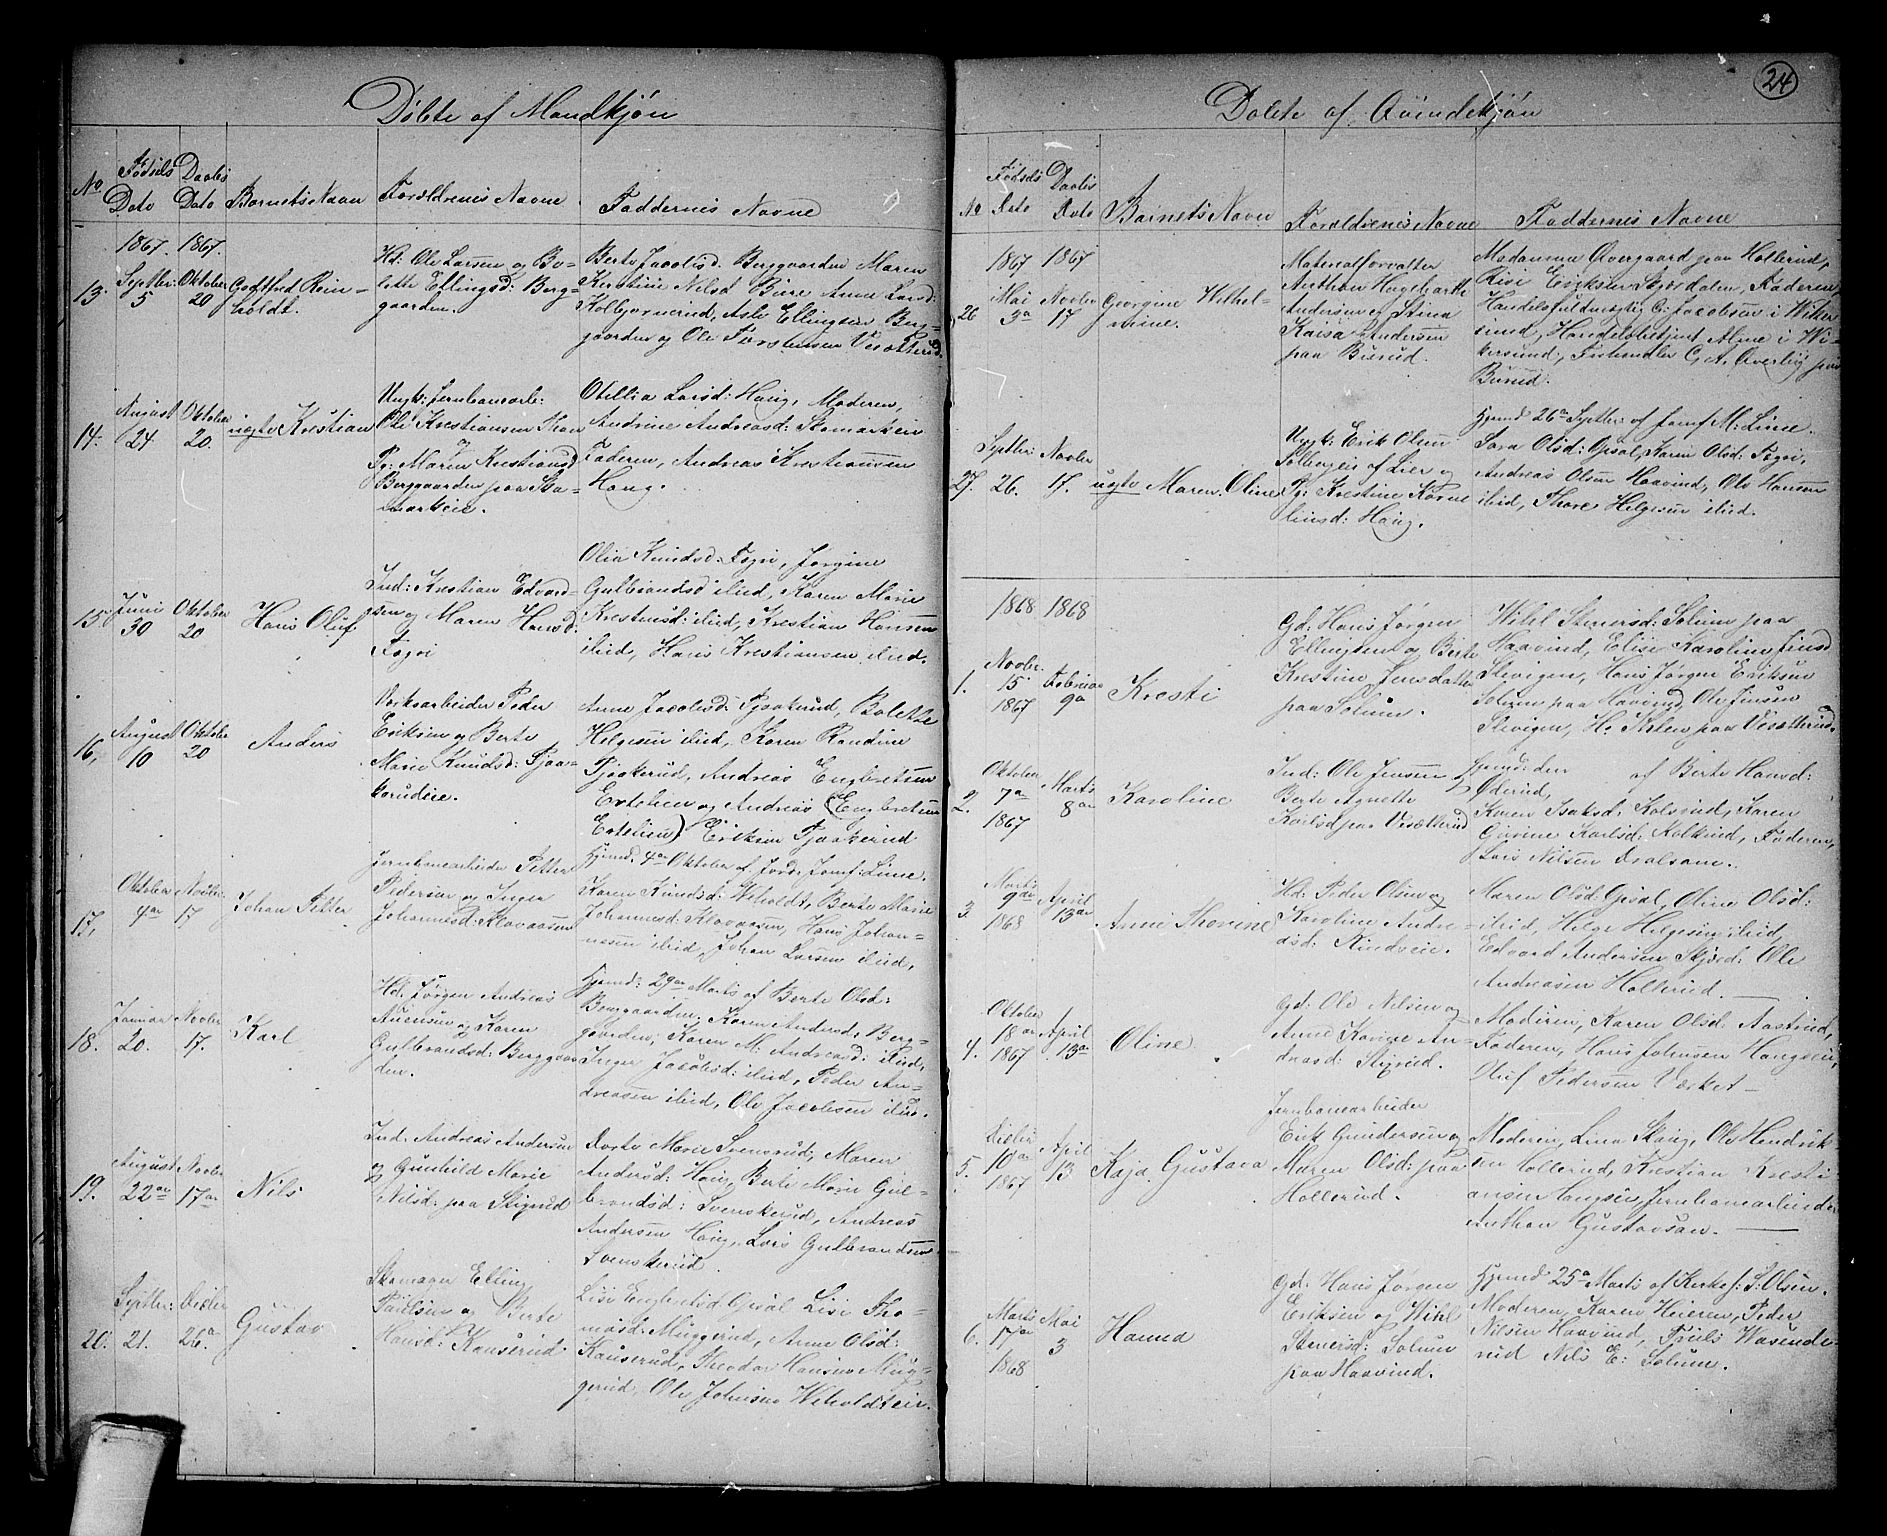 Døbte af Mandkjøn
No
Fødsels
Dato
Daabs
Dato
Barnets Navn
Forældrenes Navne
Faddernes Navne
1867. 1867.
13. Septbr: 5
Oktober 20
Gotthard Rein-
holdt.
Hd: Ole Larsen og Bo-
lette Ellingsd: Berg-
gaarden.
Berte Jacobsd. Berggaarden Maren
Kerstine Nilsd Biære Anne Larsd:
Kolbjørnerud, Aslv Ellingsen Berg-
gaarden og Ole Torstensen Vesætterud.
14. August 24
Oktober 20.
uægte Kristian
Ungk: Jernbanearb:
Ole Kristiansen Thon
og
Pg: Maren Kristiansd
Berggaarden paa Ska-
markeie.
Otellia Larsd: Haug, Moderen,
Andrine Andreasd: Skamarkeie
Faderen, Andreas Kristiansen
Haug.
15 Juni 30
Oktober 20
Hans Oluf.
Ind: Kristian Edvard-
sen og Maren Hansd:
Togri
Olia Knudsd: Togri, Jørgine
Gulbrandsd ibid, Karen Marie
Krestiansd: ibid, Kristian Hansen
ibid, Hans Kristiansen ibid.
16, August 10
Oktober 20
Anders
Værksarbeider Peder
Eriksen og Berte
Marie Knudsd: Tjaa-
kerudeie.
Anne Jacobsd: Tjaakerud, Bolette
Helgesen ibid, Karen Randine
Tjaakerud, Andreas Engbretsen
Evtelien og Andreas (Engbretsen
Evtelien) Eriksen Tjaakerud
17, Oktober 4de
Novbr: 17
Johan Petter
Jernbanearbeider Petter
Pedersen og Inger
Johannesd: Klovaasen
Hjemd. 4de Oktober af Jord: Jomf: Lime.
Karen Knudsd: Weholdt, Berte Marie
Johannesd: Klovaasen, Hans Johan-
nesen ibid, Johan Larsen ibid,
18. Januar 20.
Novbr 17.
Karl
Hd: Jørgen Andreas
Auensen og Karen
Gulbrandsd: Berggaar-
den.
Hjemd: 29de Marts af Berte Olsd:
Berggaarden; Karen Andersd, Berg-
gaarden, Karen M: Andreasd: ibid,
Inger Jacobsd: ibid, Peder An-
dreasen ibid, Ole Jacobsen ibid.
19. August 22de
Novbr 17de
Nils
Ind. Andreas Andersen
og Gunhild Marie
Nilsd: paa Skigrud
Dorte Marie Svensrud, Maren
Andersd: Haug, Berte Marie Gul-
brandsd: Svenskerud, Andreas
Andersen Haug, Lars Gulbrandsen
Svenskerud.
20. Septbr: 21.
Decbr 26de
Gustav
Skomager Elling
Paulsen og Berte
Hansd: Kauserud
Lise Engbretsd Opsal Lise Tho-
masd: Muggerud, Anne Olsd:
Kauserud, Theodor Hansen Mug-
gerud, Ole Johnsen Weholdteie.
24
Døbte af Qvindekjøn
No
Fødsels
Dato
Daabs
Dato
Barnets Navn
Forældrenes Navne
Faddernes Navne
1867 1867
26 Mai 3de
Novbr 17
Georgine Wilhel-
mine.
Materialforvalter
Anthon Hagebarth
Andersen og Stina
Kaisa Andersen
paa Burud.
Madamme Overgaard paa Hollerud,
Risi Eriksen Skjørdalen, Faderen,
Handelsfuldmægtig G. Jacobsen i Wiker-
sund, Handelsbetjent Alme i Wi-
kersund, Forhandler C, A, Overby paa
Burud.
27. Septbr: 26.
Novbr 17.
uægte Maren Oline
Ungk: Erik Olsen
Solbergeie af Lier og
Pg: Kristine Karne-
liusd: Haug.
Hjemd 26de Septbr: af Jomf M: Lime.
Sara Olsd: Opsal, Karen Olsd: Togri,
Andreas Olsen Haavind, Ole Hansen
ibid, Thore Helgesen ibid.
1868 1868
1. Novbr: 15 1867
Februar 9de
Kresti
Gd: Hans Jørgen
Ellingsen og Berte
Kristine Jensdatter
paa Solum.
Wihl Stenersd: Solum paa
Haavind, Elise Karoline Jensd
Stevigen, Hans Jørgen Eriksen
Solum paa Haavind Ole Jensen
Stevigen, H. Khlen paa Vesætterud.
2. Oktober 7de 1867
Marts 8de
Karoline
Ind: Ole Jensen
Berte Agnette og
Karlsd paa Vesætterud
Hjemd: den af Berte Hansd:
Øderud,
Karen Isaksd: Kolsrud, Karen
Gurine Karlsd: Aslkind, Faderen,
Lars Nilsen Dvalsam.
3 Marts 9de 1868
April 13de
Anne Thorine
Hd: Peder Olsen og
Karoline Andre-
dsd: Rudseie.
Maren Olsd: Opsal, Oline Olsd:
ibid, Helge Helgesen ibid,
Edvard Andersen Skjørd: Ole
Andreasen Hollerud.
4. Oktober 18de 1867
April 13de
Oline
Gd: Ole Nilsen og
Anne Karine An-
drasd: Stixrud.
Moderen, Karen Olsd: Aastrud,
Faderen, Hans Johnsen Haugseie,
Oluf Pedersen Værket
5. Decbr 10de 1867
April 13
Kaja Gustava
Jernbanearbeider
Erik Gundersen og
Maren Olsd: paa
Hollerud.
Moderen, Lina Skaug, Ole Hendrik-
sen Hollerud, Kristian Kresti-
ansen Haugseie, Jernbanearbeider
Anthon Gustavsan.
6. Marts 17de 1868
Mai 3
Hanna
Gd: Hans Jørgen
Eriksen og Wihl
Stenersd: Solum
paa Haavind.
Hjemd 25de Marts af Kirkes: S: Olsen.
Moderen, Karen Heieren, Peder
Nilsen Haavind, Truls Wasende-
rud Nils E: Solum.